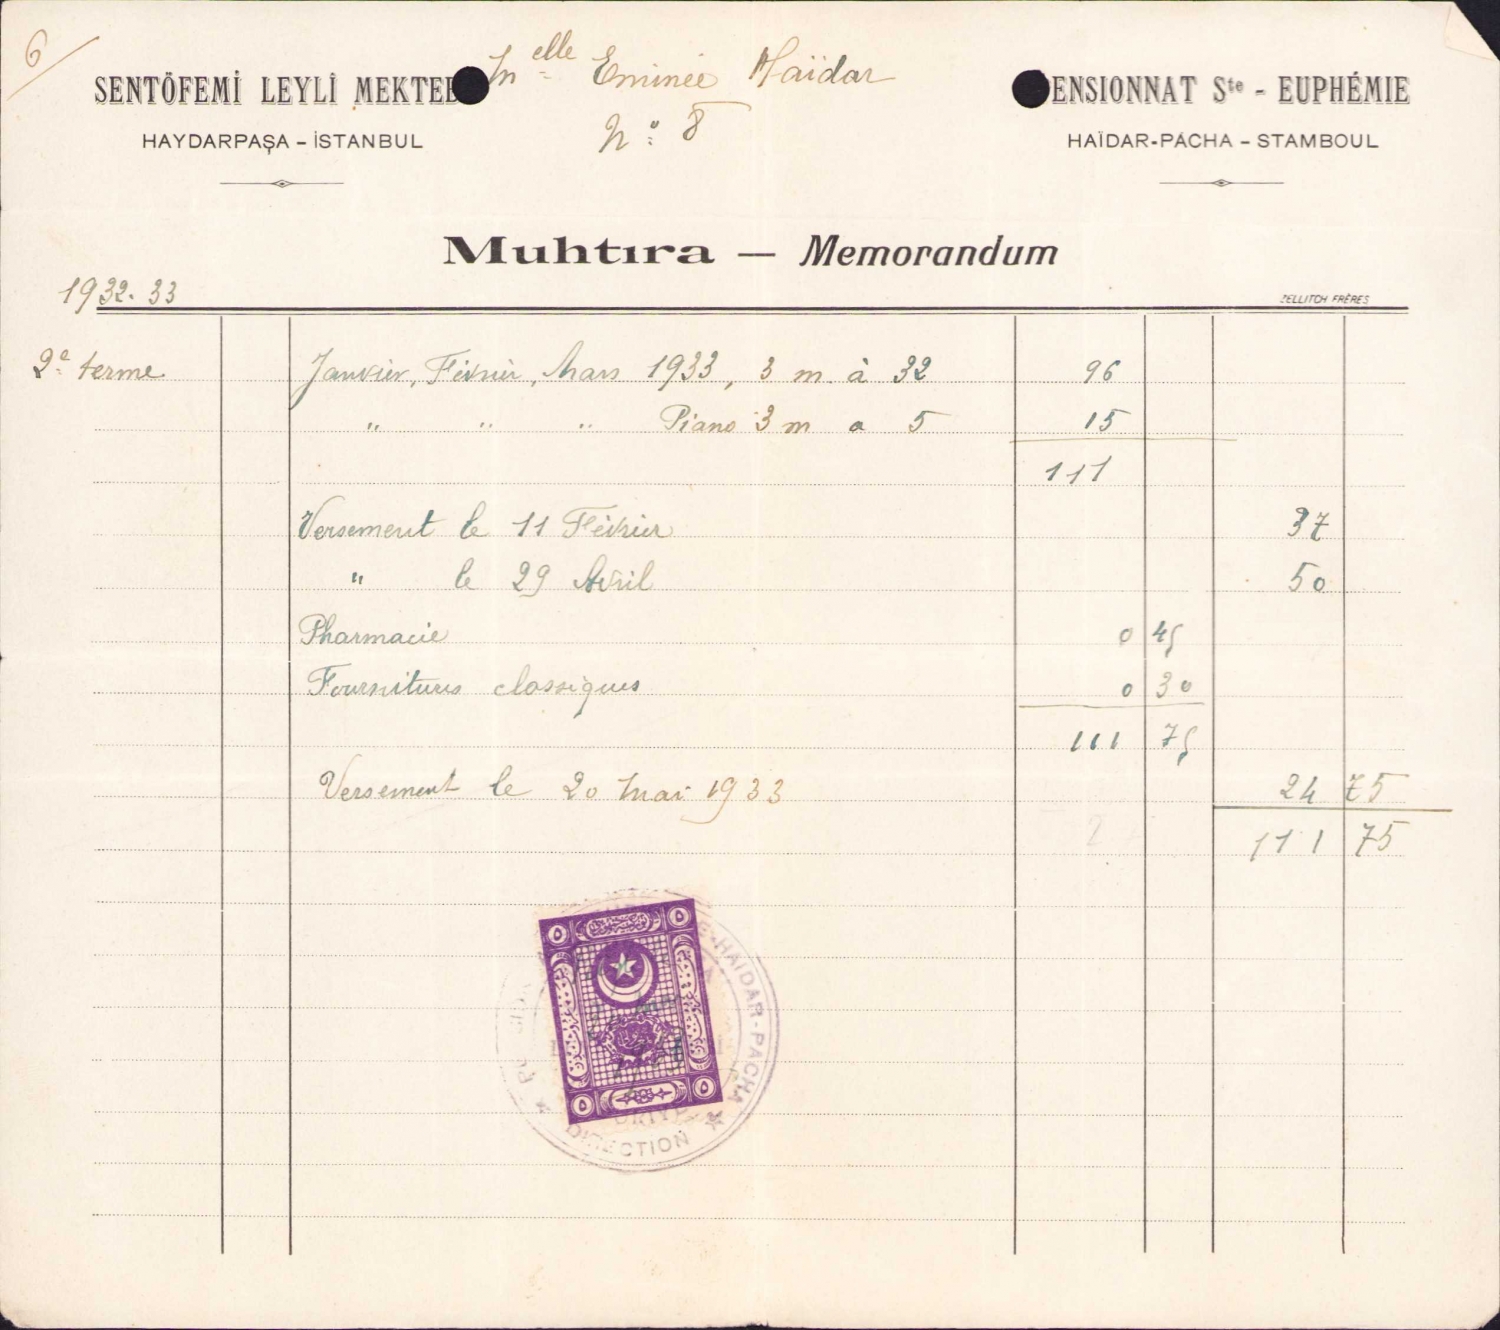 6/
Melle Eminée Haïdar
SENTÖFEMİ LEYLÎ MEKTEB
PENSIONNAT Ste - EUPHÉMIE
No: 8
HAYDARPAŞA - İSTANBUL
HAÏDAR-PACHA - STAMBOUL
Muhtıra — Memorandum
1932-33
ZELLITCH FRÈRES
2e terme Janvier, Février, Mars 1933, 3 m. à 32 96
" " " Piano 3 m a 5 15
111
Versement le 11 Février 37
" le 29 Avril 50
Pharmacie 0 45
Fournitures classiques 0 30
111 75
Versement le 20 Mai 1933 24 75
111 75
E-HAIDAR-PACHA
٥ ٥
٥ ٥
DIRECTION